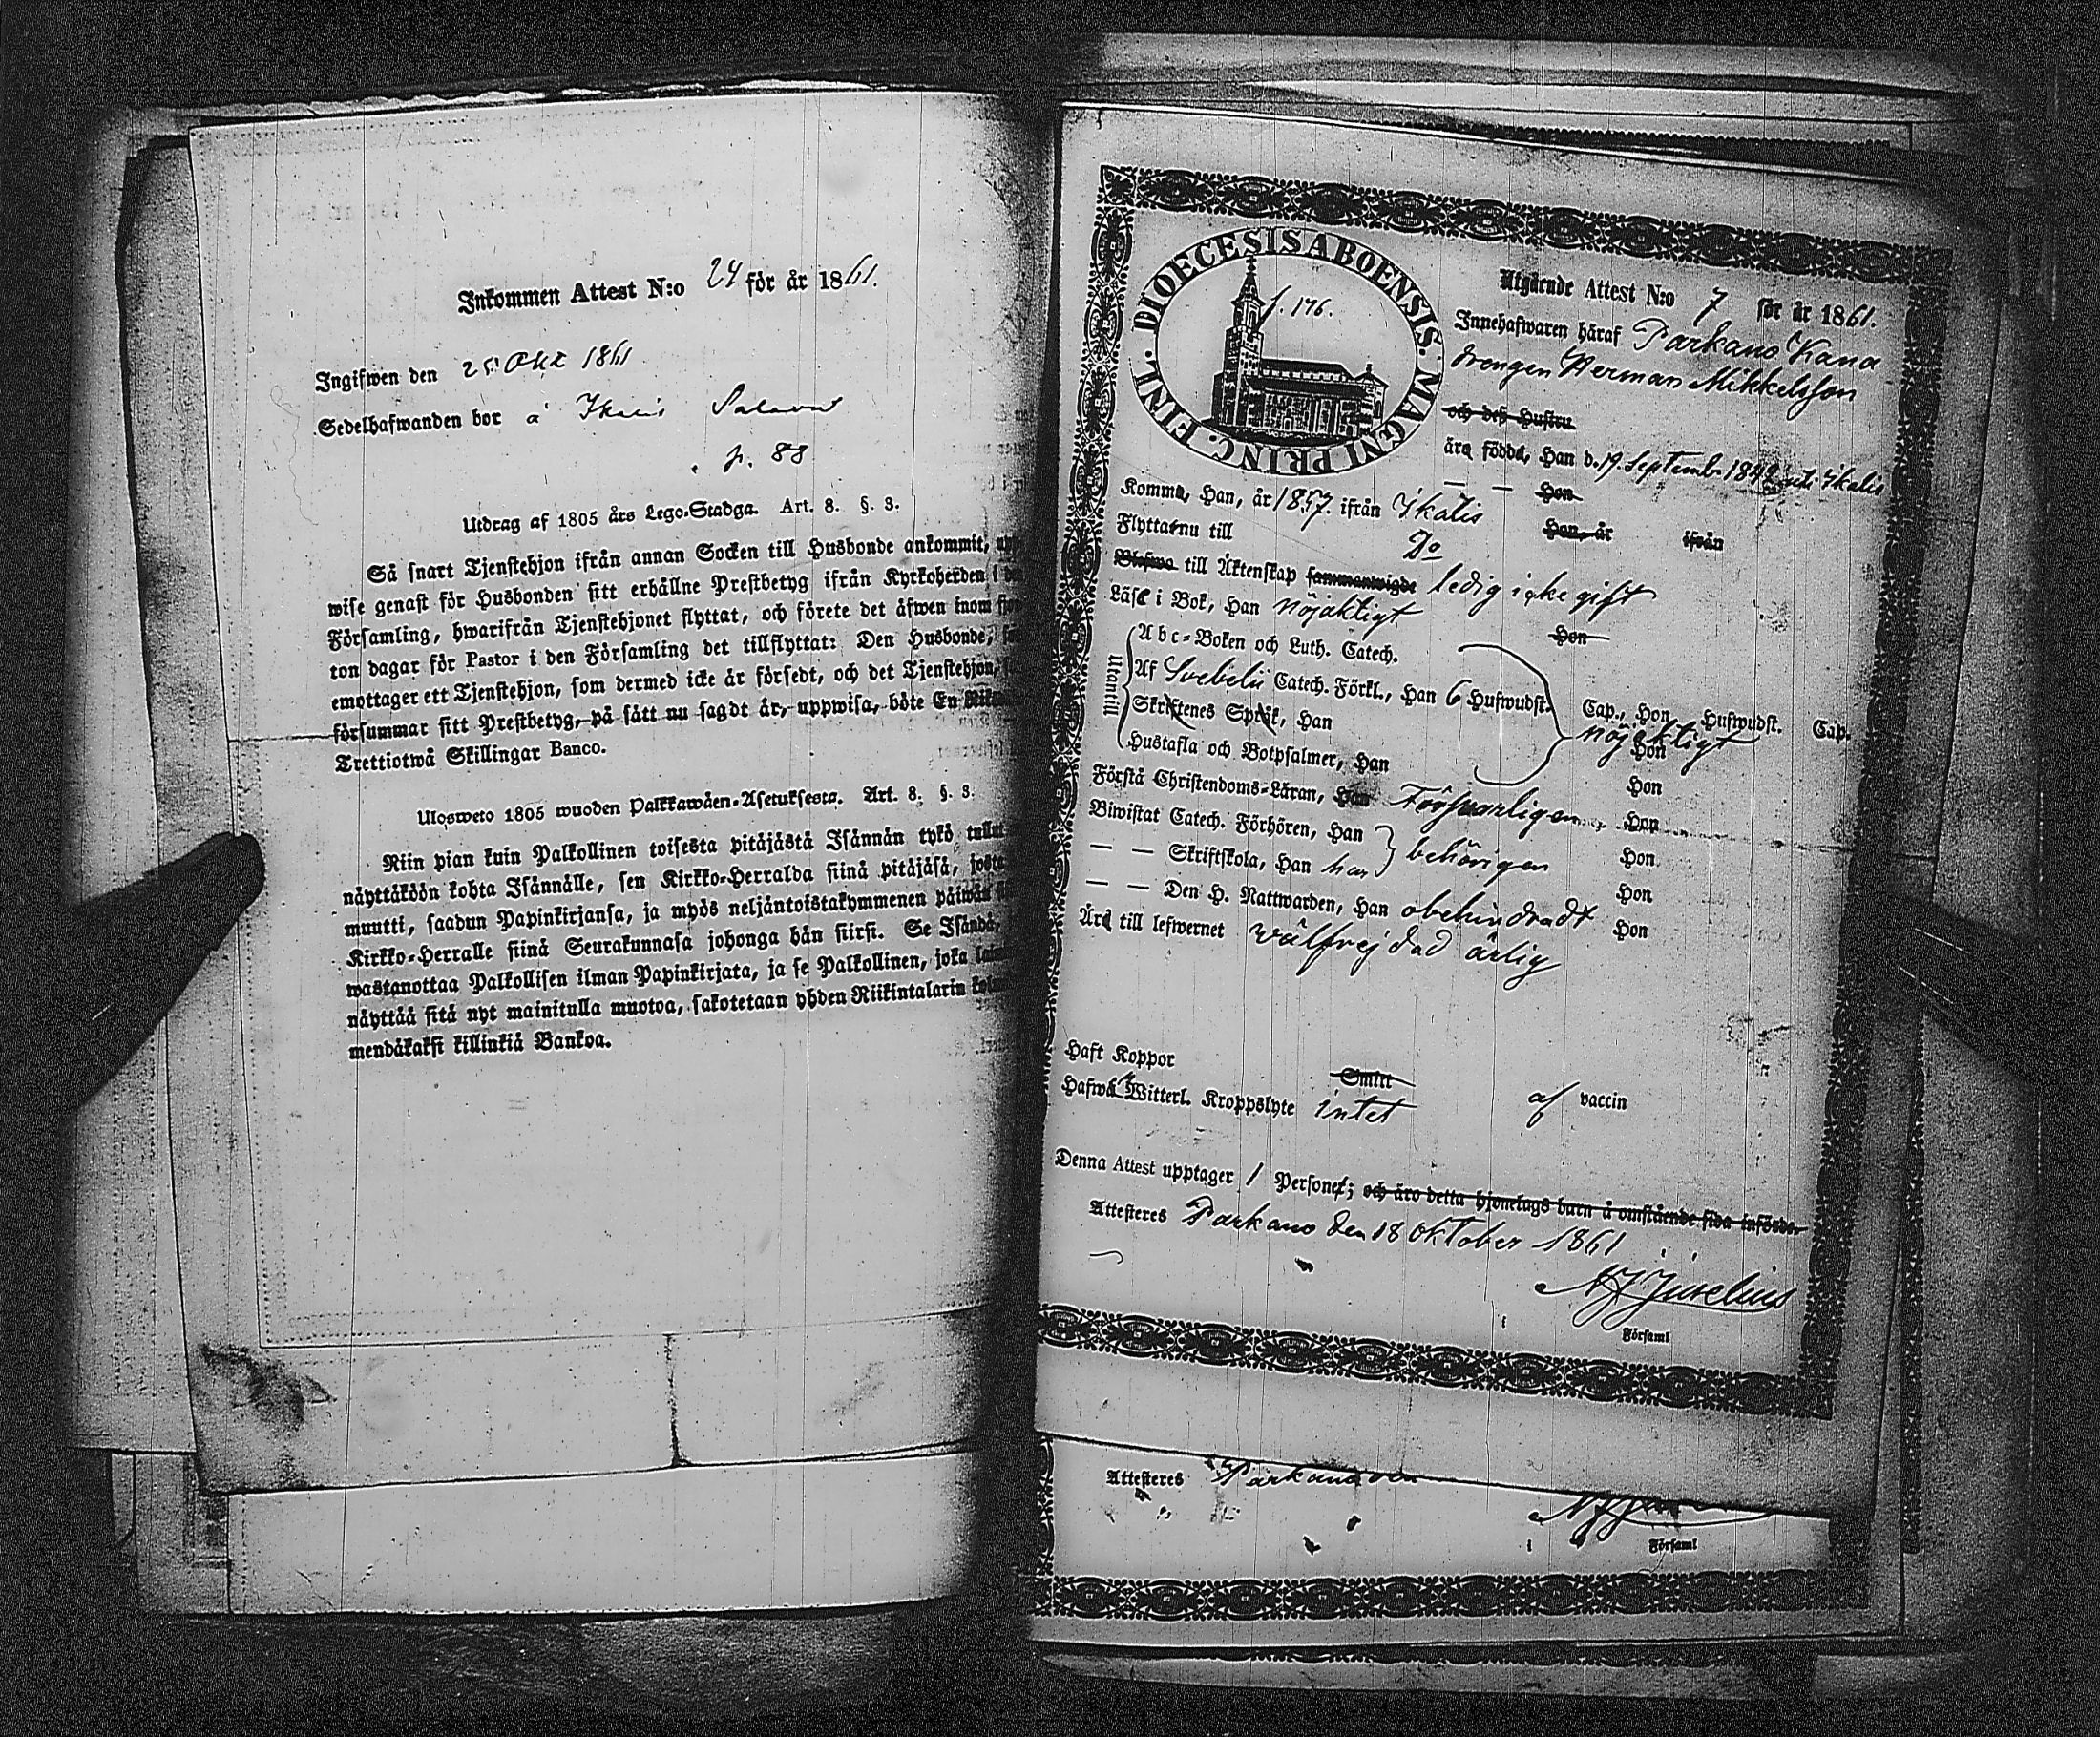 Inkommen Attest N:o 24 för år 1861.
Ingifwen den 25 Okt 1861
Sedelhafwanden bor å Ikalis
p. 88
Utdrag af 1805 års Lego-Stadga. Art. 8. §. 3.
Så snart Tjenstehjon ifrån annan Socken till Husbonde ankommit,
wise genast för Husbonden sitt erhållne Prestbetyg ifrån Kyrkoherden i
Församling, hwarifrån Tjenstehjonet flyttat, och förete det äfwen inom
ton dagar för Pastor i den Församling det tillflyttat: Den Husbonde,
emottager ett Tjenstehjon, som dermed icke är försedt, och det Tjenstehjon,
försummar sitt Prestbetyg, på sätt nu sagdt är, uppwisa, böte En
Trettiotwå Skillingar Banco.
Ulosweto 1805 wuoden Palkkawäen-Asetuksesta. Art. 8. §. 3.
Niin pian kuin Palkollinen toisesta pitäjästä Isännän tykö
näyttäköön kohta Isännälle, sen Kirkko-Herralda siinä pitäjäsä, josta
muutti, saadun Papinkirjansa, ja myös neljäntoistakymmenen päiwän
Kirkko-Herralle siinä Seurakunnasa johonga hän siirsi. Se Isändä,
wastanottaa Palkollisen ilman Papinkirjata, ja se Palkollinen, joka
näyttää sitä nyt mainitulla muotoa, sakotetaan yhden Riikintalarin
mendäkaksi killinkiä Bankoa.
DIOECESIS ABOENSIS. MAGNI PRINC. FINL.
f. 176.
Utgående Attest N:o 7 för år 1861.
Innehafwaren häraf Parkano Kana
drengen Herman Mikkelsson
och dess Hustru
äro födda, Han d. 19 Septemb. 1842 uti Ikalis
— — Hon
Komma, Han, år 1857 ifrån Ikalis Hon, år ifrån
Flytta nu till Do
Blefwo till Äktenskap sammanwigde ledig icke gift
Läse i Bok, Han nöjaktigt Hon
Utantill
Abc-Boken och Luth. Catech.
Af Svebelii Catech. Förkl., Han 6 Hufwudst. Cap., Hon Hufwudst. Cap.
Skriftenes Språk, Han nöjaktigt Hon
Hustafla och Botpsalmer, Han Hon
Förstå Christendoms-Läran, Han Försvarligen Hon
Biwistat Catech. Förhören, Han behörigen Hon
— — Skriftskola, Han han Hon
— — Den H. Nattwarden, Han obehindradt Hon
Äro till lefwernet wälfrejdad ärlig
Haft Koppor Smitt af vaccin
Hafwa Witterl. Kroppslyte intet
Denna Attest upptager 1 Personer; och äro detta hjonelags barn å omstående sida införde.
Attesteres Parkano den 18 Oktober 1861
N J Juselius
i Församl
Attesteres Parkano den
i Församl